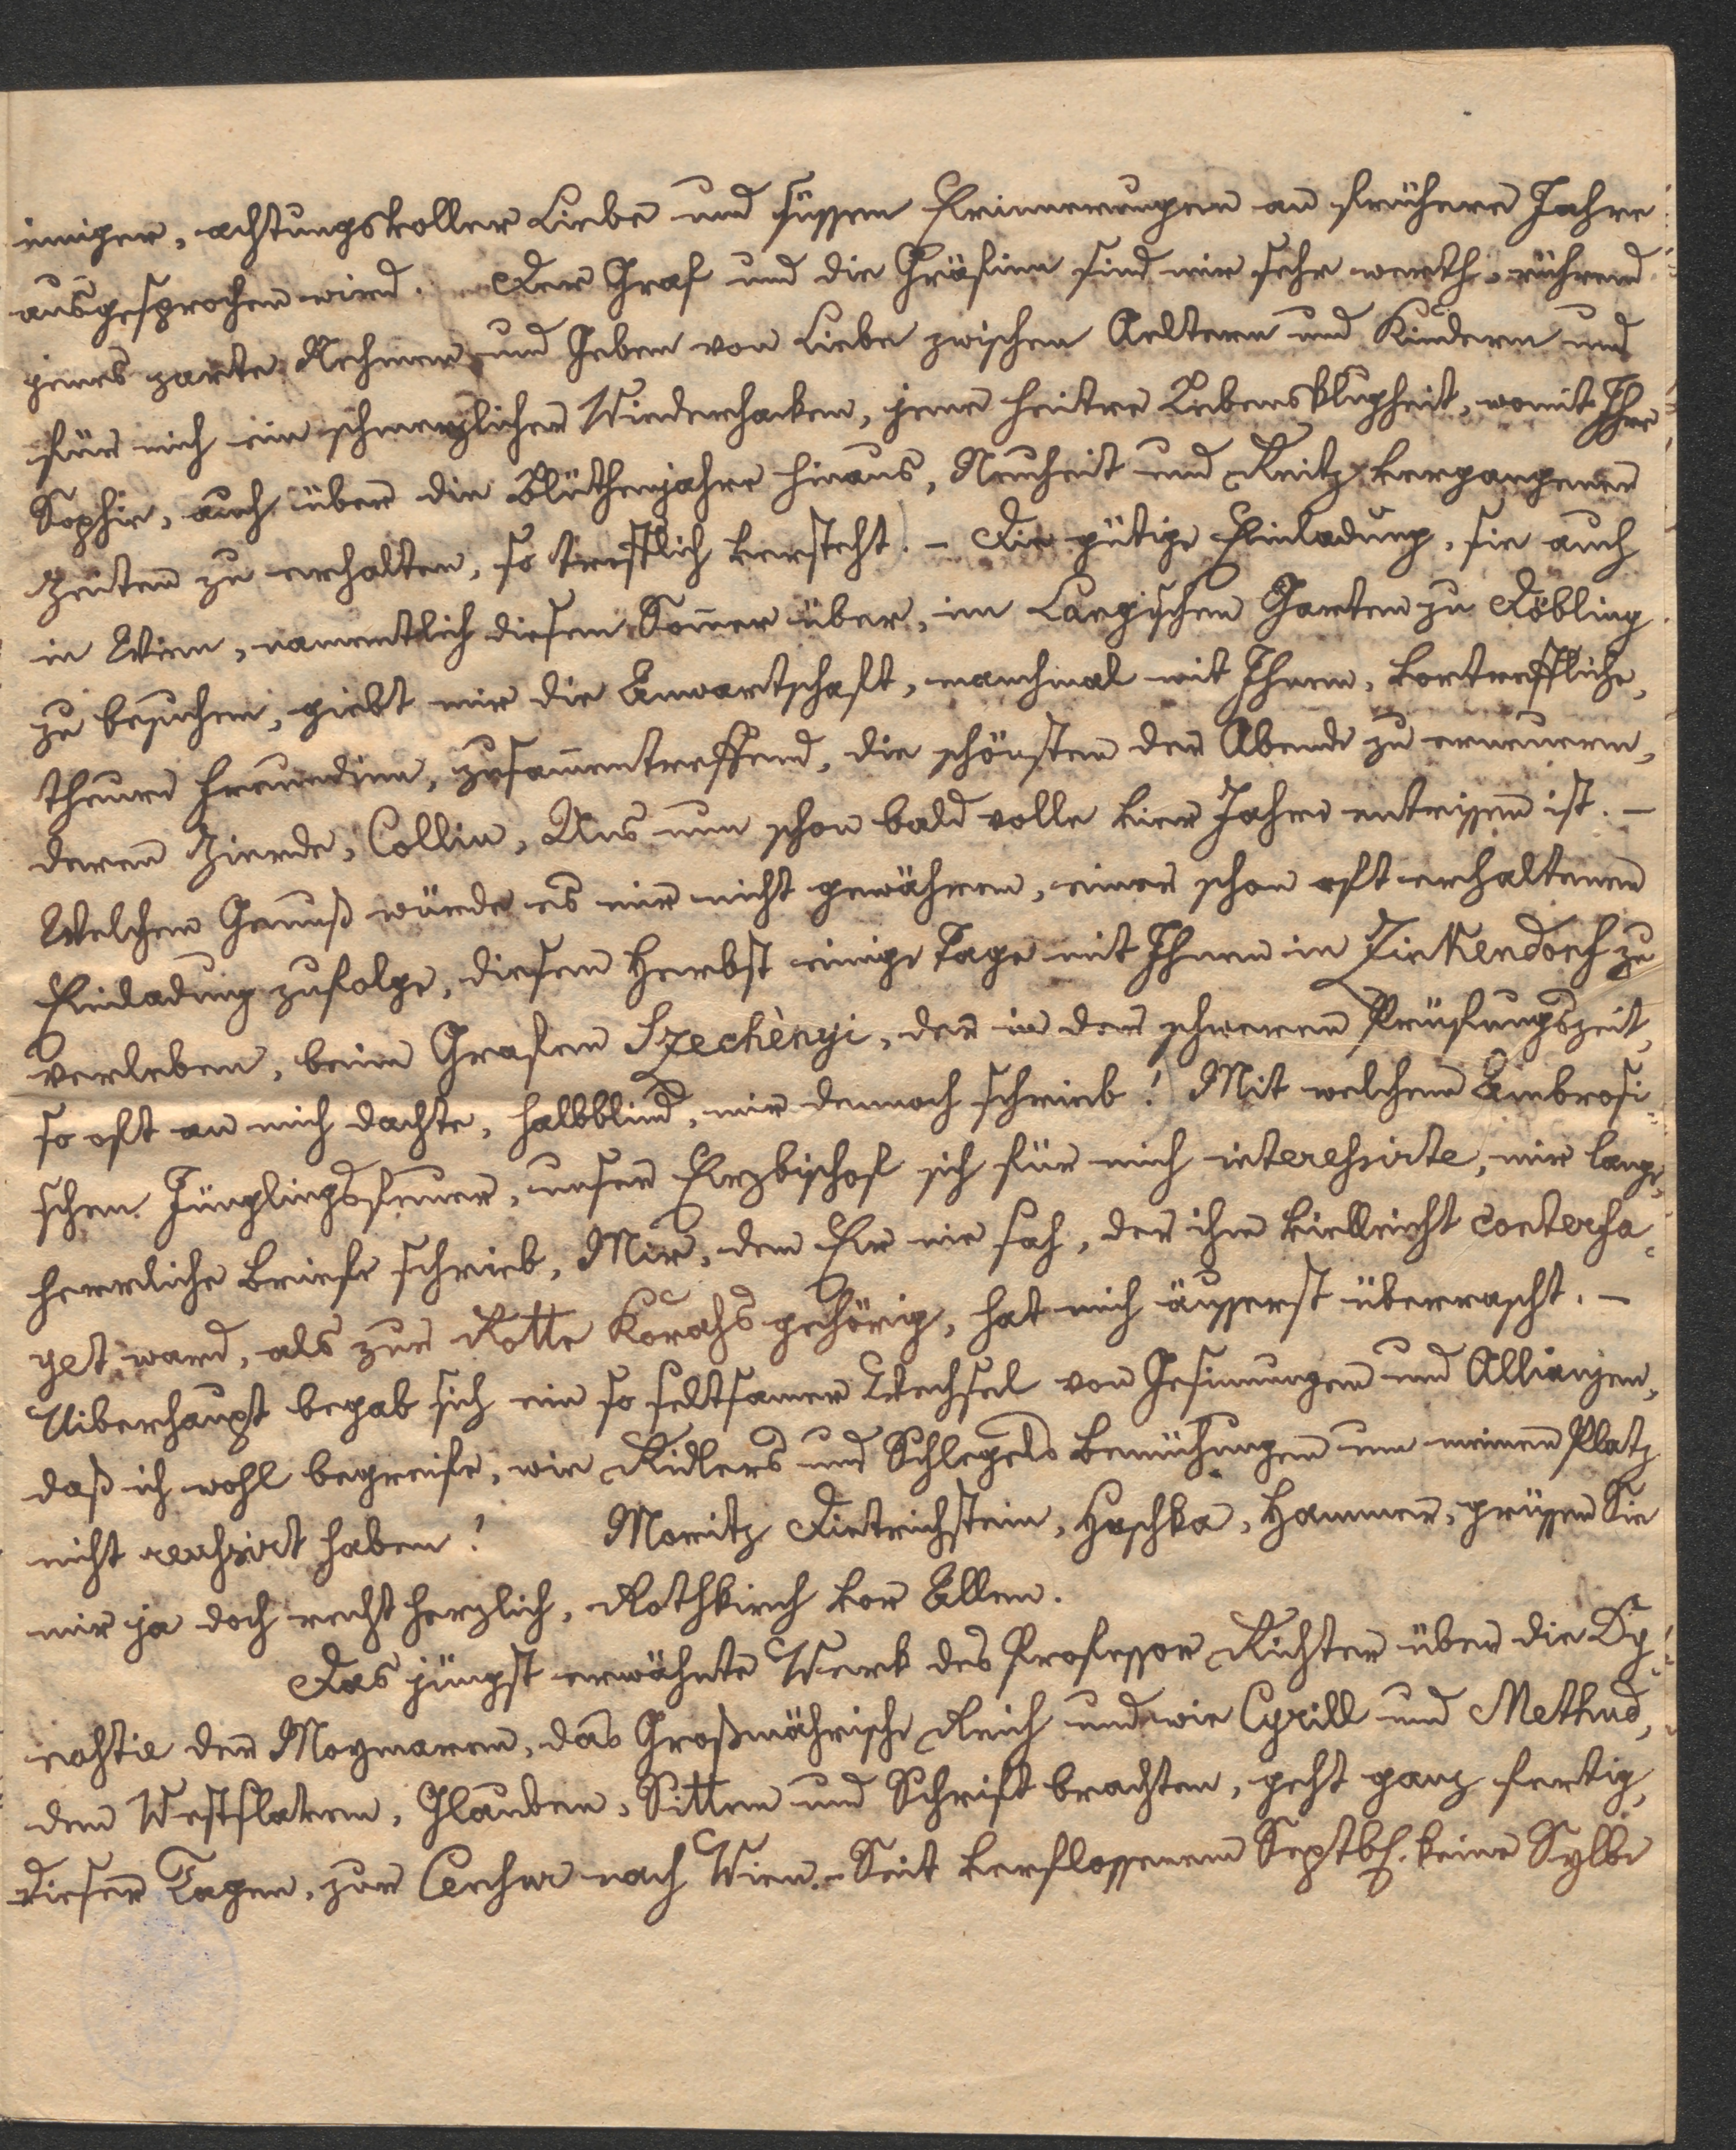 inniger, achtungsvoller Liebe und süssen Erinnerungen an frühere Jahre
ausgesprochen wird. Der Graf und die Gräfinn sind mir sehr werth, rührend
jenes zarte Nehmen und Geben von Liebe zwischen Aeltern und Kindern und
für mich ein schmerzlicher Wiederhacken, jene heitre Lebensklugheit, womit Ihre
Sophie, auch über die Blüthenjahre hinaus, Neuheit und Reitz vergangener
Zeiten zu erhalten, so trefflich versteht. – Die gütige Einladung, sie auch
in Wien, namentlich diesen Som̄er über, im Langischen Garten zu Döbling
zu besuchen, giebt mir die Anwartschaft, manchmal mit Ihnen, vortreffliche,
theure Freundinn, zusam̄entreffend, die schönsten der Abende zu erneuern,
deren Zierde, Collin, Uns nun schon bald volle vier Jahre entrissen ist. –
Welchen Genuß würde es mir nicht gewähren, einer schon oft erhaltenen
Einladung zufolge, diesen Herbst einige Tage mit Ihnen in Zinkendorf zu
verleben, beim Grafen Szechènyi, der in der schweren Prüfungszeit,
so oft an mich dachte, halbblind, mir dennoch schrieb! Mit welchem Ambrosi-
schen Jünglingsfeuer, unser Erzbischof sich für mich interessirte, mir lange,
herrliche Briefe schrieb, Mir, den Er nie sah, der ihm vielleicht conterfa-
yet ward, als zur Rotte Korahs gehörig, hat mich äusserst überrascht. –
Uiberhaupt begab sich ein so seltsamer Wechsel von Gesinnungen und Allianzen,
daß ich wohl begreife, wie Ridlers und Schlegels Bemühungen um meinen Platz
nicht reussirt haben! Moritz Dietrichstein, Haschka, Hammer, grüssen Sie
mir ja doch recht herzlich, Rothkirch vor Allen.
Das jüngst erwähnte Werk des Professor Richter über die Dy-
nastie der Moymaren, das Großmährische Reich und wie Cyrill und Method,
den Westslaven, Glauben, Sitten und Schrift brachten, geht ganz fertig,
dieser Tagen, zur Censur nach Wien. – Seit verflossenem Septbr. keine Sylbe